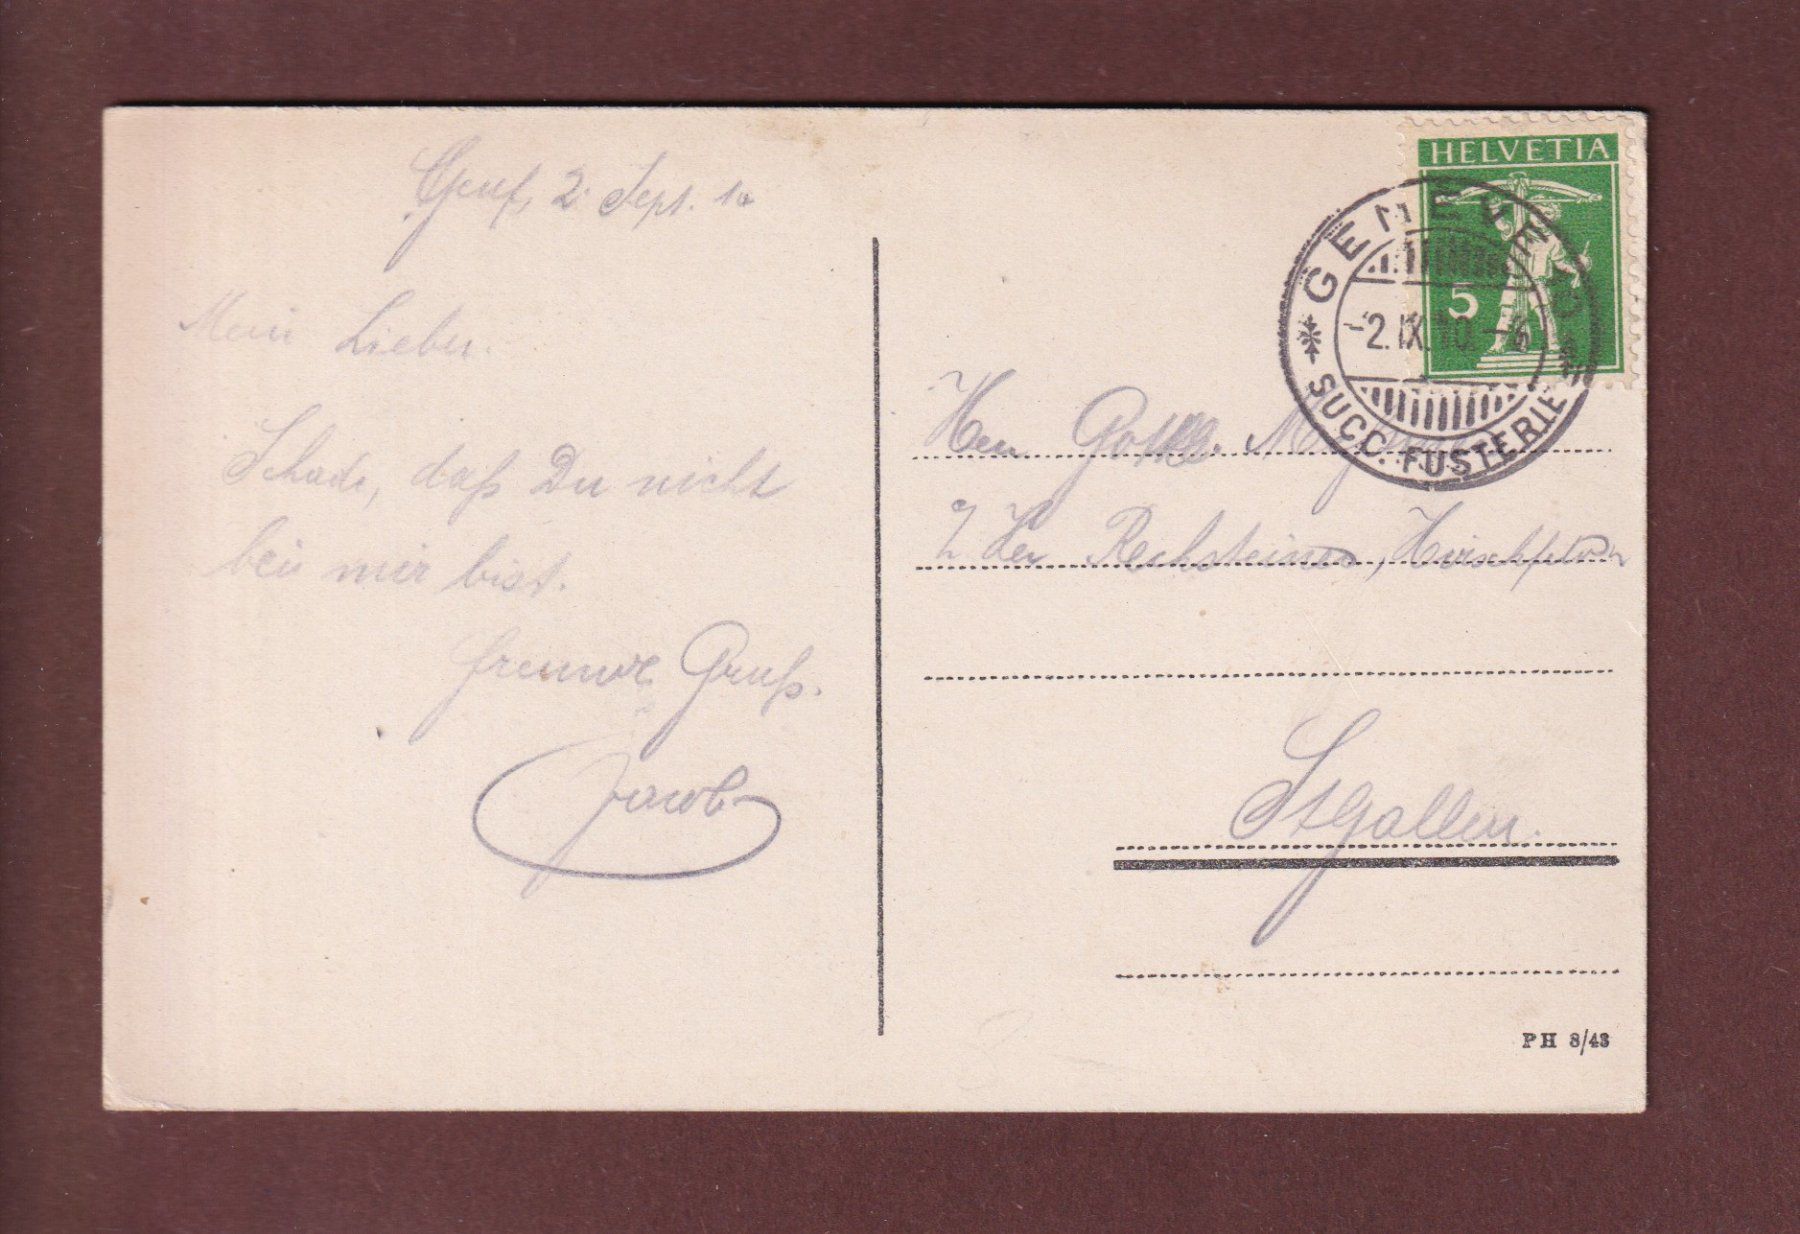 Genf, 2. Sept. 10
Mein Lieber.
Schade, daß Du nicht
bei mir bist.
Gruß.
Jacob
HELVETIA
5
GENEVE
-2.IX.10.
SUCC. FUSTERIE
Herr
Rechsteiner,
St Gallen.
PH 8/43